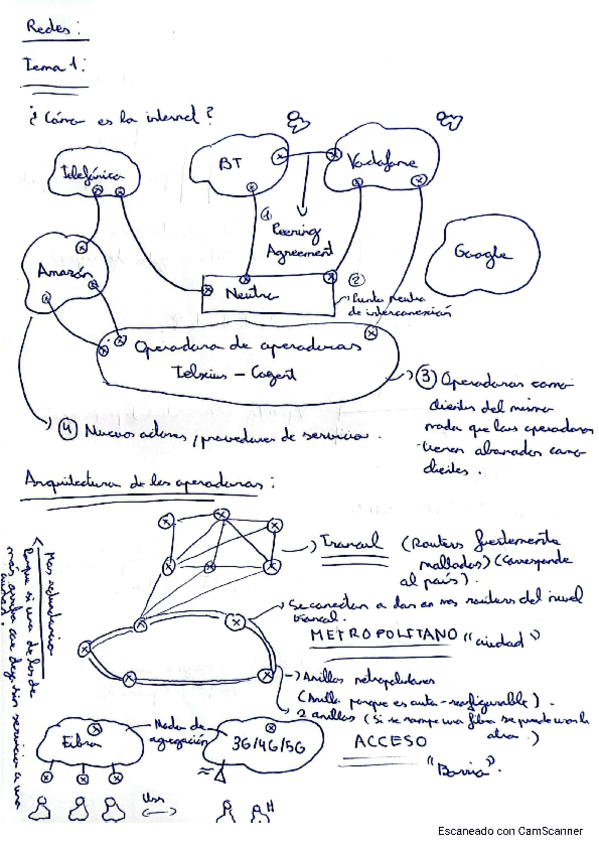 Redes:
Tema 1:
¿Cómo es la internet?
Telefónica
BT
Vodafone
① Peering
Agreement
Google
Amazon
Neutro
② Punto neutro
de interconexión
Operadora de operadoras
Telxius - Cogent
③ Operadoras como
clientes del mismo
modo que las operadoras
tienen abonados como
clientes.
④ Nuevos actores / proveedores de servicio.
Arquitectura de las operadoras:
Troncal (Routers fuertemente
mallados) (Corresponde
al país).
Se conectan a dos o más routers del nivel
troncal.
METROPOLITANO "ciudad"
Anillos metropolitanos
(Anillo porque es auto-reconfigurable).
2 anillos (Si se rompe una fibra se puede usar la
otra.)
Más redundancia
Porque si uno de los de
más arriba cae deja sin servicio a una
ciudad.
Fibra
Nodos de
agregación
3G/4G/5G
ACCESO
"Barrio".
Usr
H
Escaneado con CamScanner